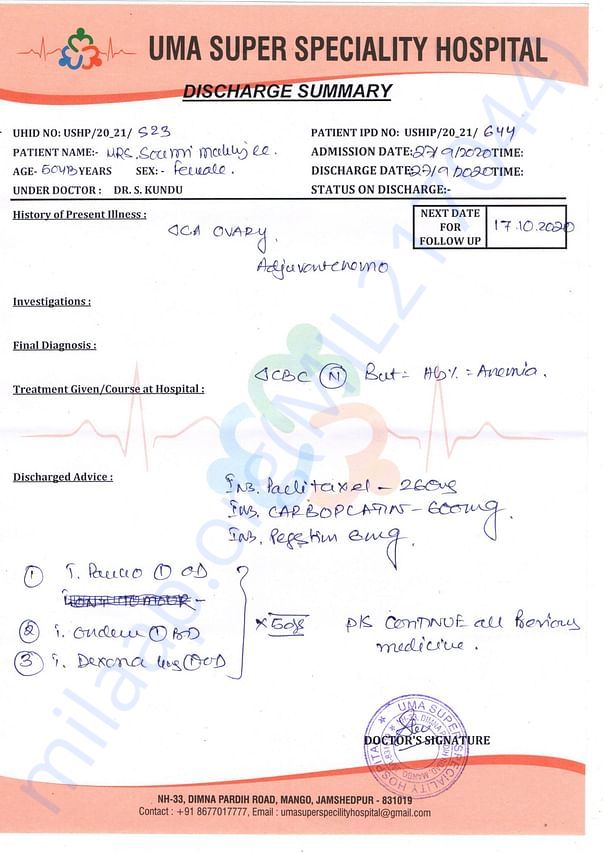 UMA SUPER SPECIALITY HOSPITAL
DISCHARGE SUMMARY
UHID NO: USHP/20_21/ 523 PATIENT IPD NO: USHIP/20_21/ 644
PATIENT NAME:- MRS. ADMISSION DATE: 27/9/2020 TIME:
AGE- 50 YEARS SEX: - Female. DISCHARGE DATE: 27/9/2020 TIME:
UNDER DOCTOR : DR. S. KUNDU STATUS ON DISCHARGE:-
History of Present Illness :
NEXT DATE FOR FOLLOW UP 17.10.2020
CA OVARY.
Adjuvant chemo
Investigations :
Final Diagnosis :
CBC (N) But = Hb% = Anemia.
Treatment Given/Course at Hospital :
Discharged Advice :
Inj. Paclitaxel - 260mg
Inj. CARBOPLATIN - 600mg.
Inj. Pegstim 6mg.
1 T. ① OD
2 T. Ondem ① BD
3 T. Dexona 4mg ① OD
Pls CONTINUE all Previous
medicine.
UMA SUPER SPECIALITY HOSPITAL
DOCTOR'S SIGNATURE
NH-33, DIMNA PARDIH ROAD, MANGO, JAMSHEDPUR - 831019
Contact : +91 8677017777, Email : umasuperspecilityhospital@gmail.com
milaap.org(MIL217044)